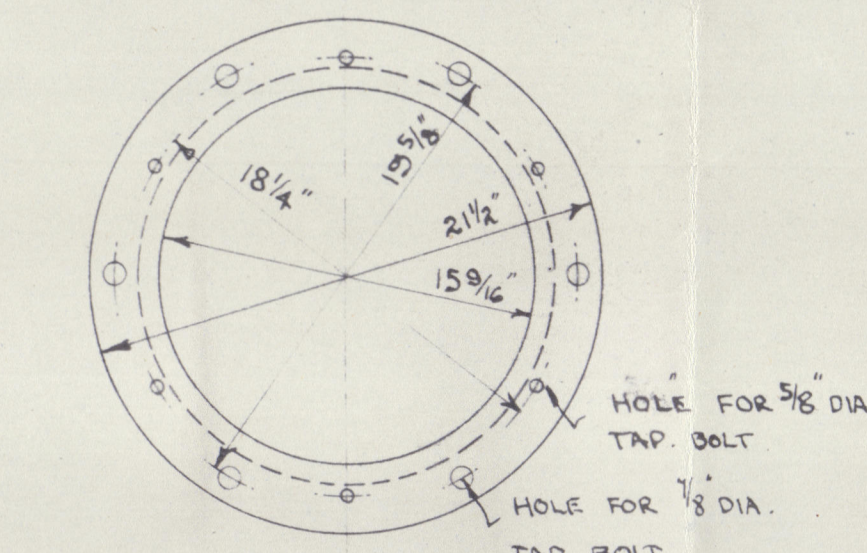 19 5/8"
18 1/4"
21 1/2"
15 9/16"
HOLE FOR 5/8" DIA
TAP. BOLT
HOLE FOR 7/8" DIA.
TAP BOLT